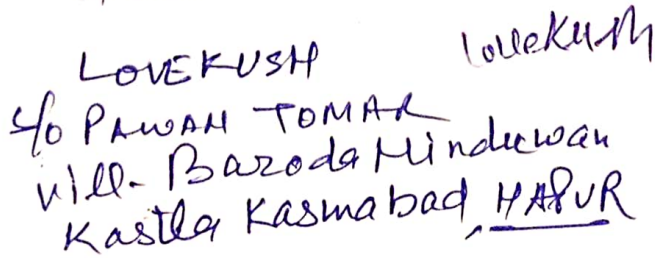 LOVEKUSH
Lovekush
S/o PAWAN TOMAR
vill- Baroda Hinduwan
Kastla Kasmabad, HAPUR